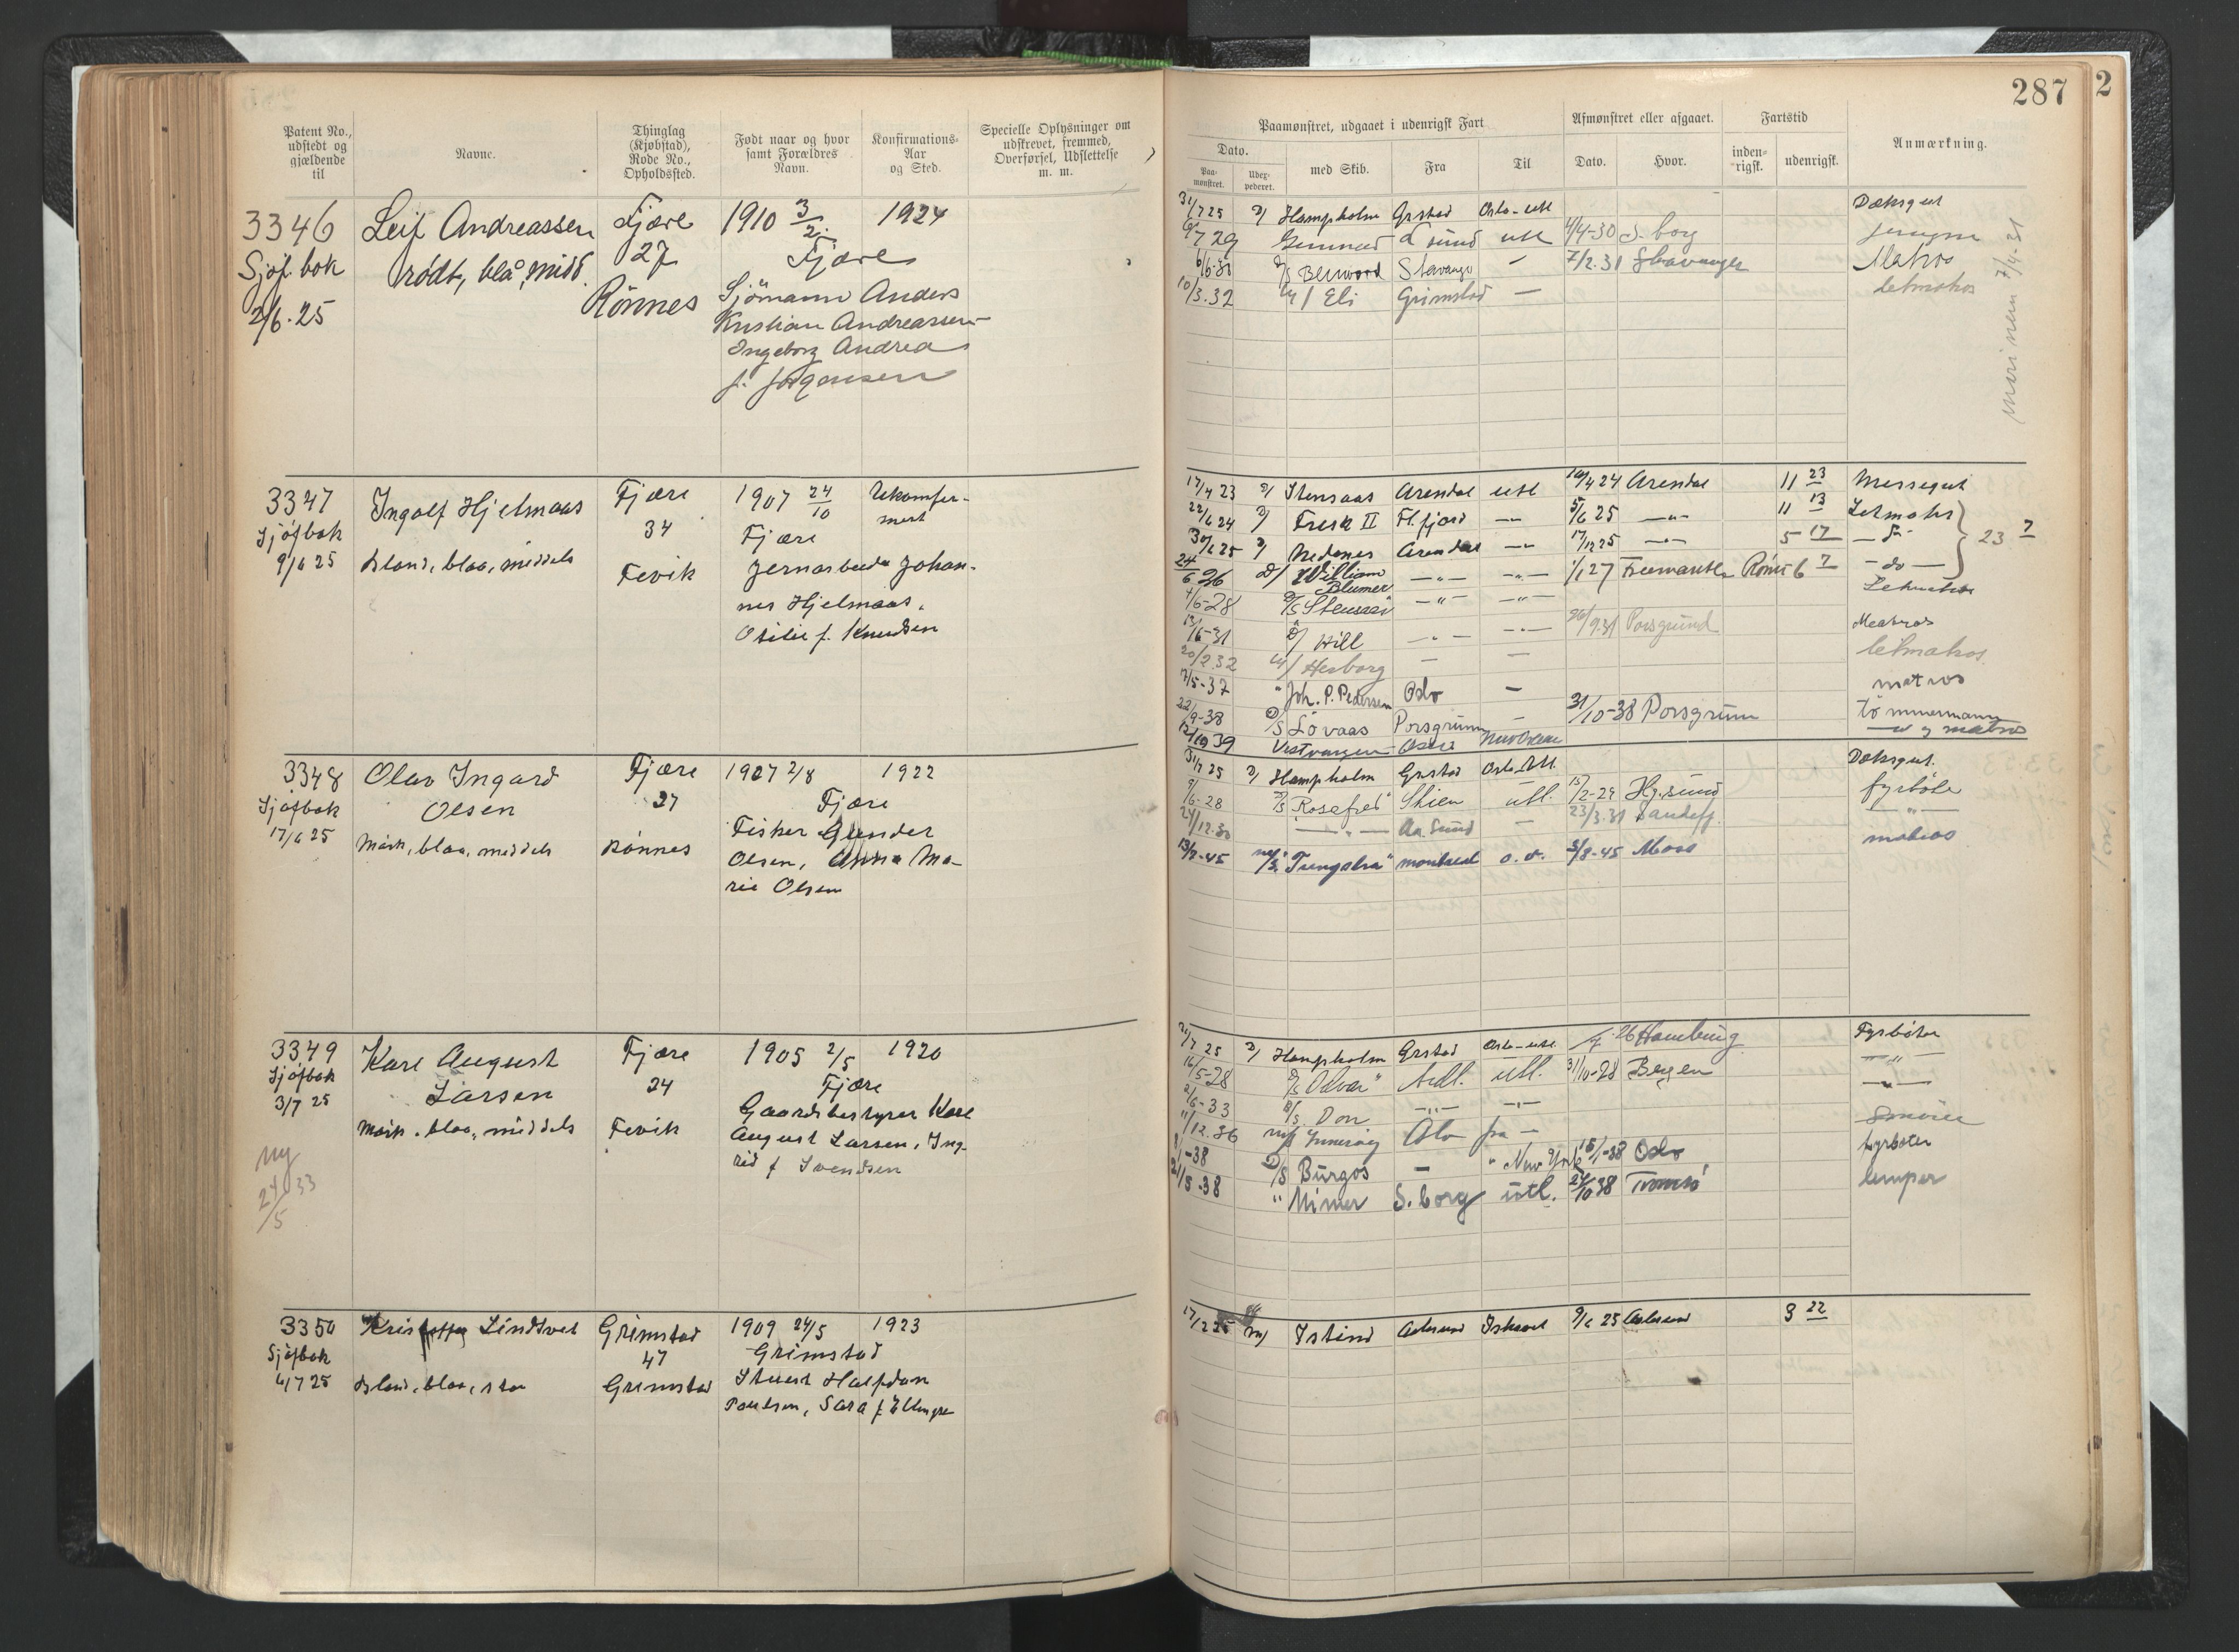 287
2
Patent No., udstedt og gjældende til
Navne.
Thinglag (Kjøbstad), Rode No., Opholdssted.
Født naar og hvor samt Forældres Navn.
Konfirmations-Aar og Sted.
Specielle Oplysninger om udskrevet, fremmed, Overførsel, Udslettelse m. m.
Paamønstret, udgaaet i udenrigsk Fart
Afmønstret eller afgaaet.
Fartstid
Anmærkning.
Dato.
Paa-mønstret.
Udex-pederet.
med Skib.
Fra
Til
Dato.
Hvor.
inden-rigsk.
udenrigsk.
3346 Leif Andreassen Fjære 1910 3/2 1924
Sjøf. bok rødt, blå, midd. 27 Fjære
2/6.25 Rönnes Sjömann Anders
Kristian Andreassen
Ingeborg Andrea
f. Jörgensen
31/7 25 D/ Hampholm Grstad Oslo-utl Dæksgut
7 29 sund utl 4/4-30 S.borg
6/6.30 D/S Stavanger — 7/2.31 Stavanger Matros
10/3.32 M/ Eli Grimstad — letmatros
7/4 31
3347 Ingolf Hjelmaas Fjære 1907 24/10 Ukonfir-
mert
Sjøfbok 34 Fjære
9/6 25 Blond, blaa, middels Fevik Jernarbeider Johan-
nes Hjelmaas,
Otilie f. Knudsen
17/4 23 D/ Stensaas Arendal utl 10/4 24 Arendal 11 23 Messegut
22/6 24 D/ Fresk II Fl.fjord —"— 5/6 25 —"— 11 13 Letmatrs
30/6 25 D/ Nedenes Arendal —"— 17/12 25 —"— 5 17 23 7
24/6 26 D/ William Blumer —"— —"— 1/1 27 Freemantle 6 7 - do -
4/6-28 D/S —"— —"— Letmatros
13/6-31 D/ Hill —"— —"— 20/9.31 Porsgrund Matros
20/2.32 M/ Hesborg — — letmatros.
7/5-37 " Joh. P. Pedersen Oslo — matros
22/9-38 D/S Løvaas Porsgrunn — 31/10-38 Porsgrunn tømmermann
39 Vestvangen matros
3348 Olav Ingard Fjære 1907 2/8 1922
Sjøfbok Olsen 27 Fjære
17/6 25 Mørk, blaa, middels Rønnes Fisker Gunder
Olsen, Anna Ma-
rie Olsen
31/7 25 D/ Hampholm Grstad Oslo-Utl. Dæksgut.
9/6-28 D/S "Rosefjeld" Skien utl. 15/2-29 Hg.sund fyrbøter
27/12.30 —"— Aa.sund — 23/3.31 Sandefj. —"—
13/7-45 M/S "Tungsha" montreal o.v. 5/8-45 Moss matros
3349 Karl August Fjære 1905 2/5 1920
Sjøfbok Larsen 24 Fjære
3/7 25 Mørk, blaa, middels Fevik Gaardsbestyrer Karl
August Larsen, Ing-
rid f Svendsen
ny
24/5 33
31/7 25 D/ Hampholm Grstad Oslo-utl 26 Hamburg Fyrbøter
16/5-28 D/S "Odvar" Ardl. utl. 31/10-28 Bergen —"—
2/6-33 D/S. Don —"— —"— —"—
11/12.36 M/S Oslo fra —
/1-38 D/S Burgos — " New York 15/1-38 Oslo fyrbøter
21/5-38 " Mimer S.borg utl. 24/10 38 Tromsø lemper
3350 Kristoffer Lindtveit Grimstad 1909 24/5 1923
Sjøfbok 47 Grimstad
4/7 25 Blond, blaa, stor Grimstad Stuert Halfdan
Poulsen, Sara f.
17/2 25 M/ Istind Aalesund Ishavet 9/6 25 Aalesund 3 22